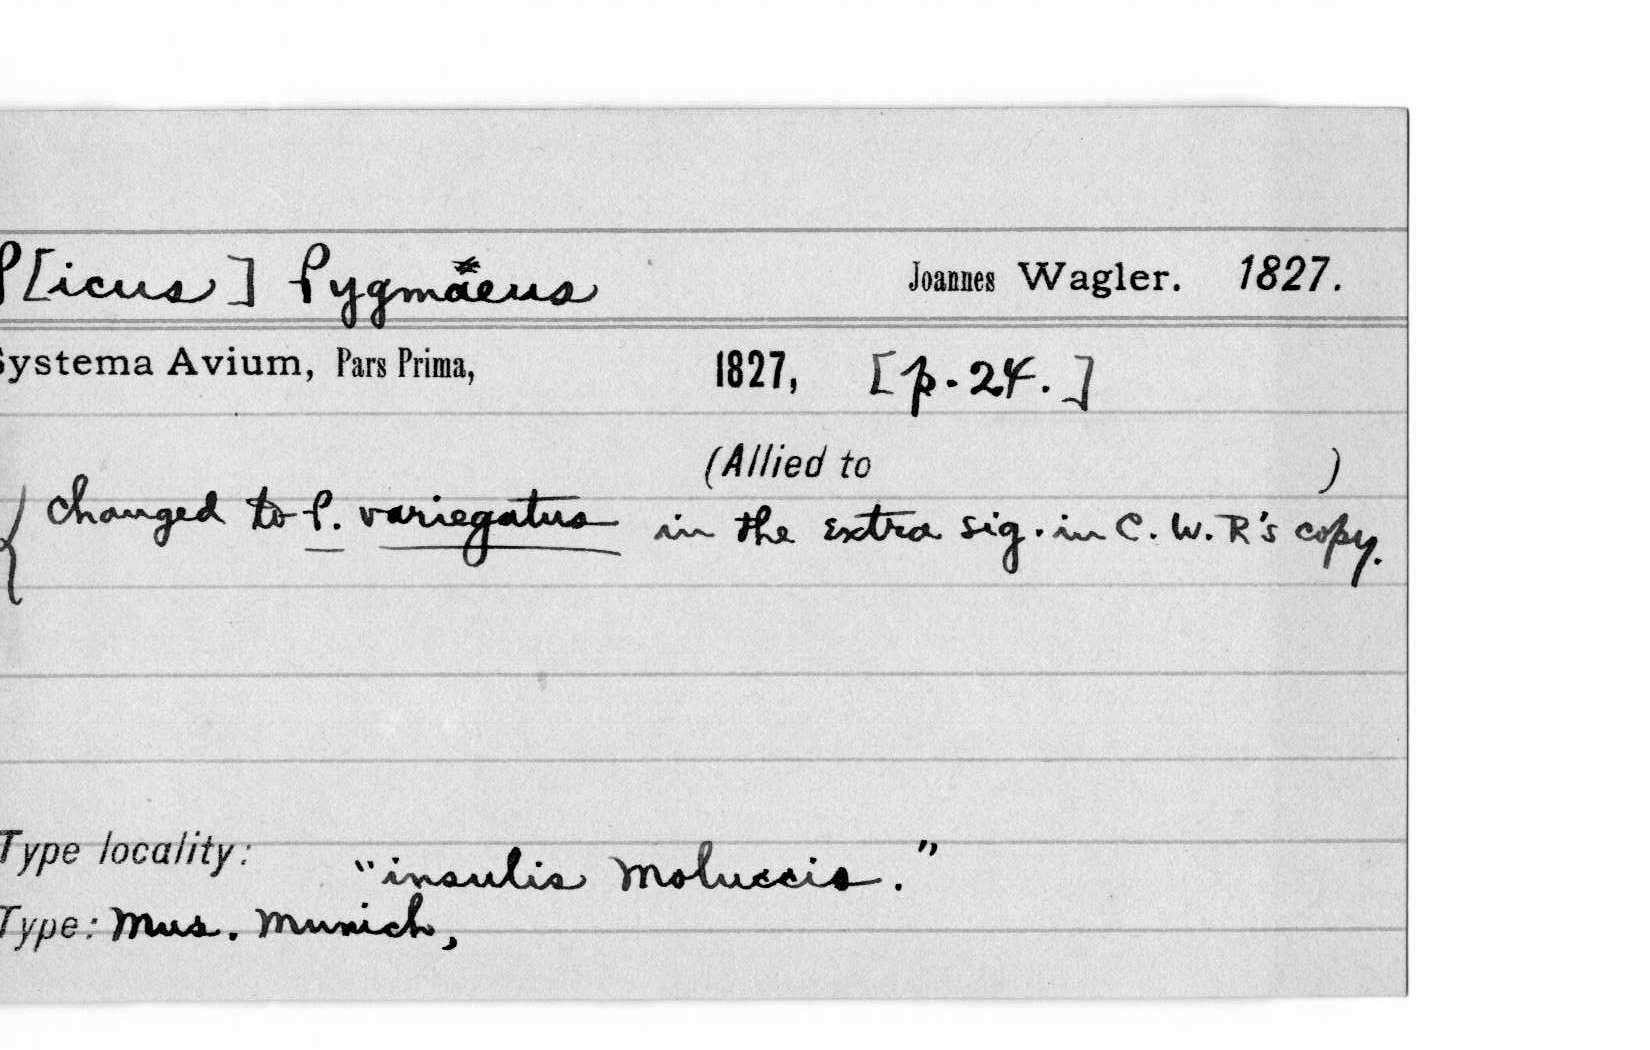 P[icus] Pygmaeus Joannes Wagler. 1827.
Systema Avium, Pars Prima, 1827, [p. 24.]
(Allied to )
{ changed to P. variegatus in the extra sig. in C. W. R's copy.
Type locality: "insulis Moluccis."
Type: Mus. Munich,